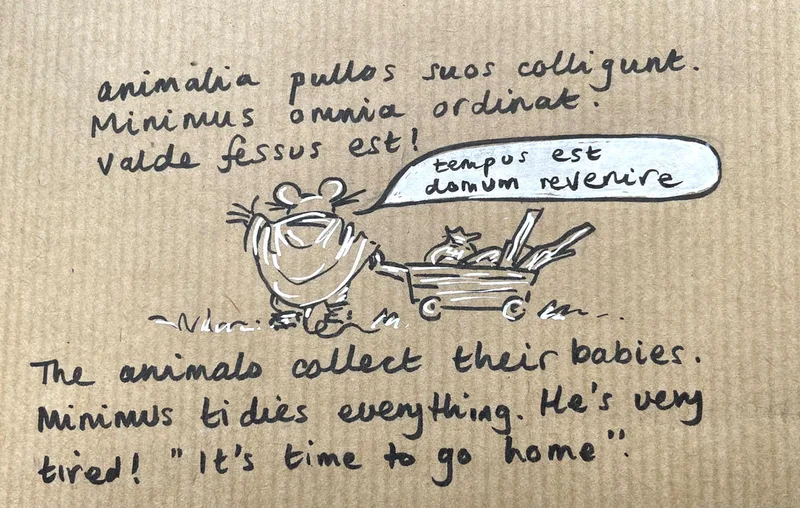 animalia pullos suos colligunt.
Minimus omnia ordinat.
valde fessus est!
tempus est
domum revenire
The animals collect their babies.
Minimus tidies everything. He's very
tired! "It's time to go home".